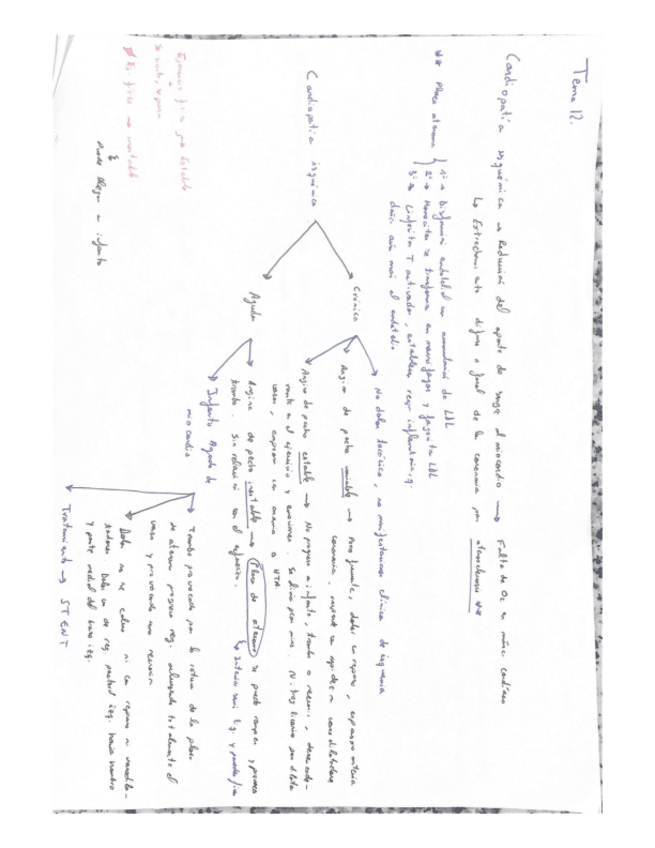 Tema 12.
Cardiopatía isquémica → Reducción del aporte de sangre al miocardio → Falta de O2 en músc. cardíaco
↳ Estrechamiento difuso o focal de la coronaria por aterosclerosis **
** Placa ateroma { 1º → Disfunción endotelial con acumulación de LDL
2º → Monocitos se transforma en macrófagos y fagocita LDL
3º → Linfocitos T activados, establecen resp. inflamatoria, y
daña aún más el endotelio
Cardiopatía isquémica
Crónica
No dolor torácico, no manifestaciones clínica de isquemia
Angina de pecho variable → Poco frecuente, dolor en reposo, espasmo arteria
coronaria, responde rápido a vasodilatadores
Angina de pecho estable → No progresa a infarto, trombo o necrosis, desencade-
nante es el ejercicio y emociones. Se alivia para dilata
vasos,
o HTA.
Aguda
Angina de pecho inestable → Placa de ateroma se puede romper y provoca
trombo. Sin relación con el esfuerzo.
Infarto Agudo de
miocardio
Trombo provocado por la rotura de la placa
de ateroma previa
vaso y provocando una necrosis
Dolor no se calma ni con reposo ni vasodila-
tadores. Dolor en reg. pectoral izq. hacia hombro
y parte medial del brazo izq.
Tratamiento → STENT
Ejercicio físico → Estable
Se
→ inestable
puede llegar a infarto